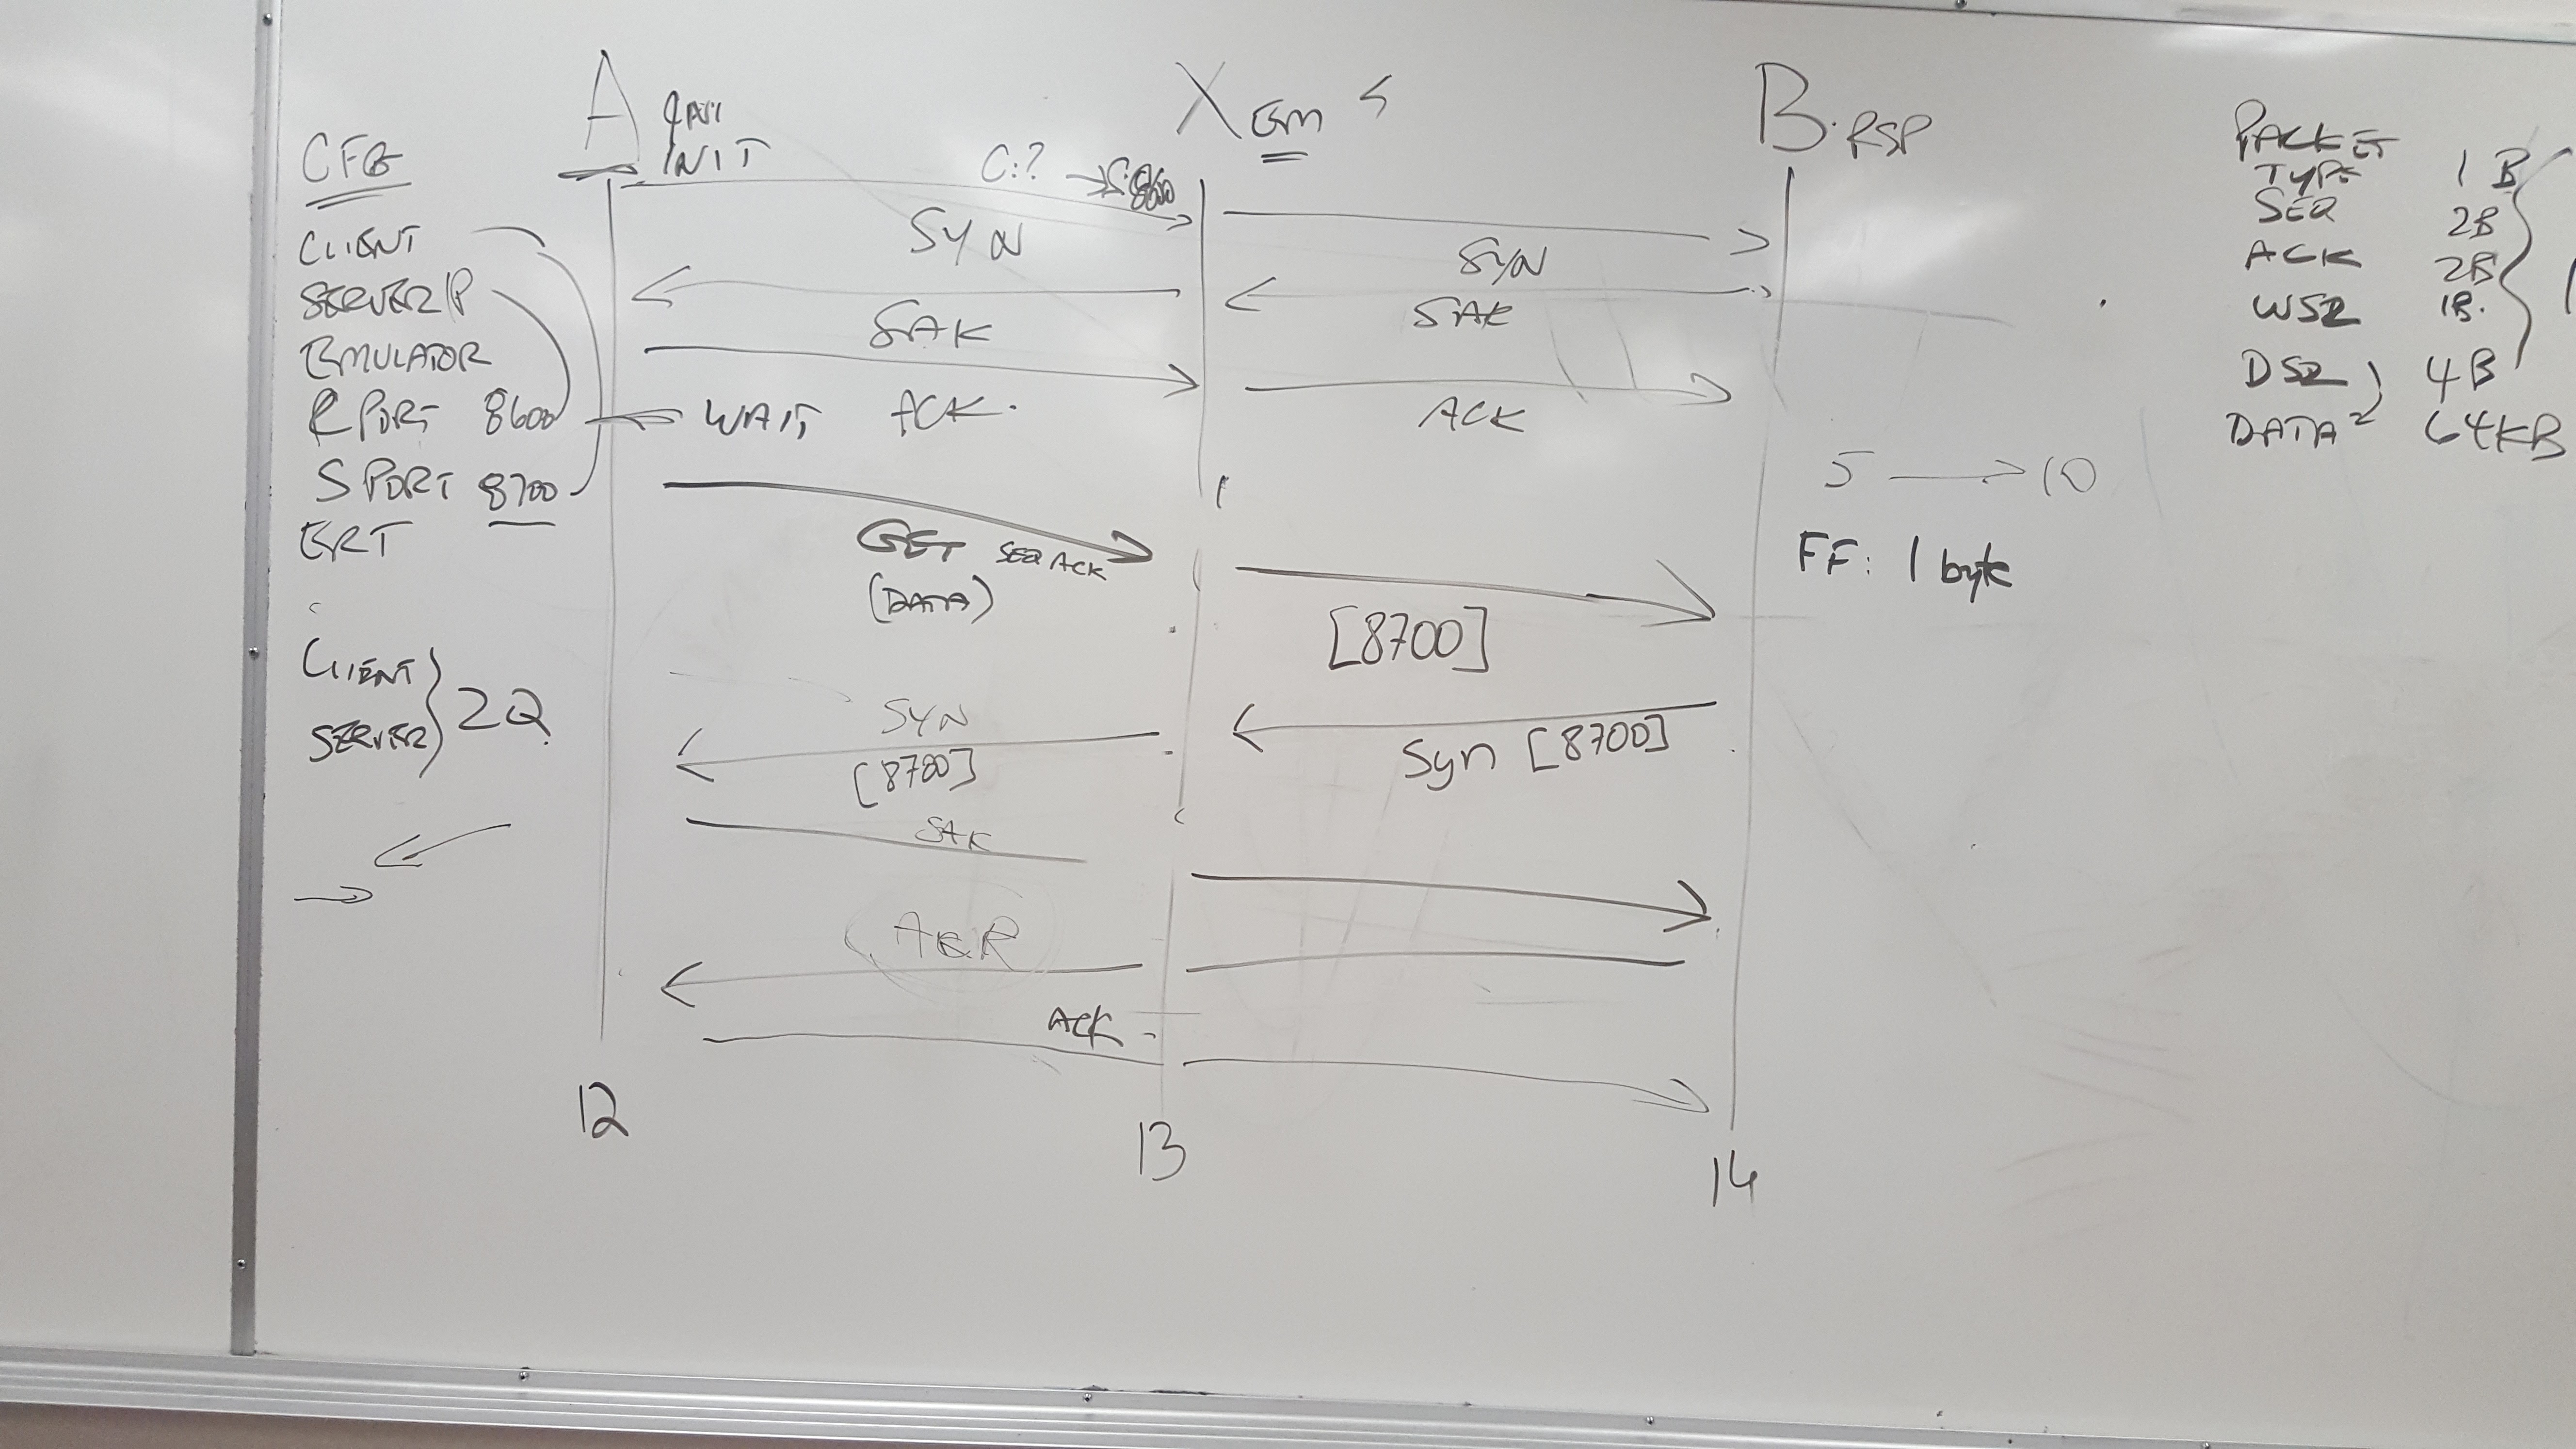 CFG
CLIENT
SERVER IP
EMULATOR
R PORT 8600
S PORT 8700
ERT
CLIENT
SERVER
2Q
A
INIT
X EM
B. RSP
C:? → S:8600
SYN
SYN
SAK
SAK
WAIT ACK.
ACK
GET SEQ ACK
(DATA)
[8700]
SYN
[8700]
Syn [8700]
SAK
ACK
12
13
14
5 → 10
FF: 1 byte
PACKET
TYPE 1B
SEQ 2B
ACK 2B
WSZ 1B.
DSZ 4B
DATA 64KB